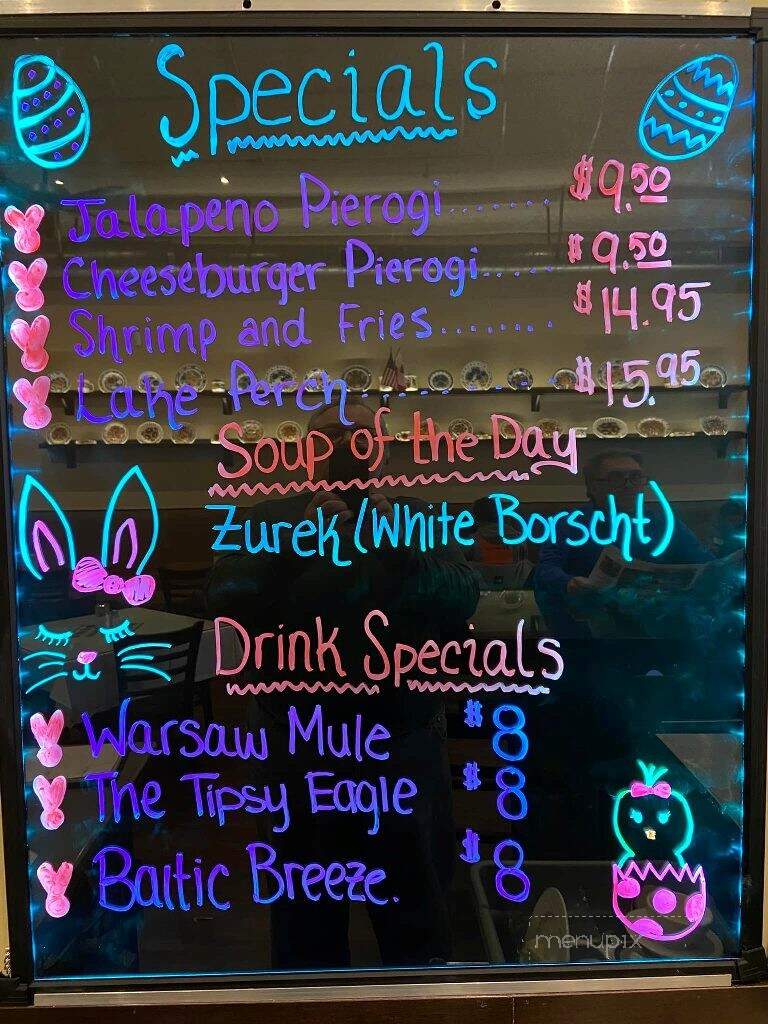 Specials
Jalapeno Pierogi....... $9.50
Cheeseburger Pierogi..... $9.50
Shrimp and Fries........ $14.95
Lake Perch.......... $15.95
Soup of the Day
Zurek (White Borscht)
Drink Specials
Warsaw Mule $8
The Tipsy Eagle $8
Baltic Breeze. $8
menupix